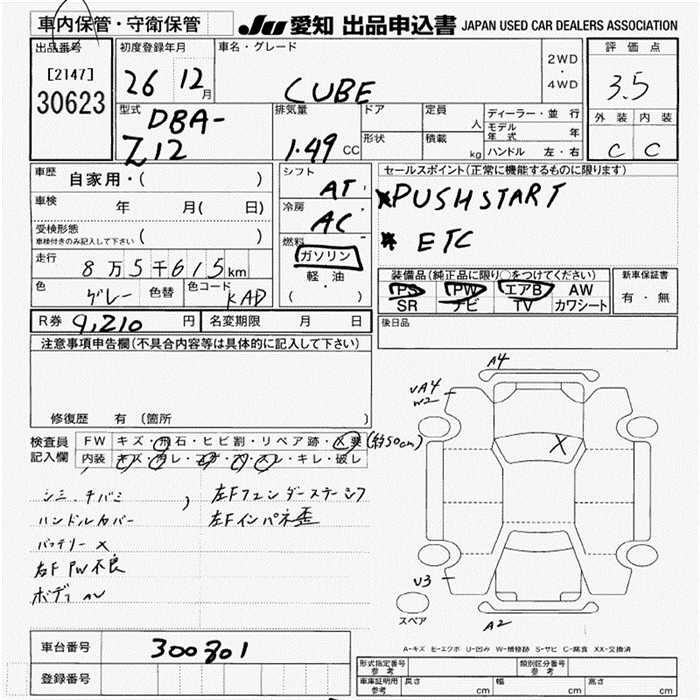 車内保管・守衛保管
JU 愛知 出品申込書 JAPAN USED CAR DEALERS ASSOCIATION
出品番号
[2147]
30623
初度登録年月
26 12月
車名・グレード
CUBE
2WD
・
4WD
評価点
3.5
外装 内装
C C
型式
DBA-
Z12
排気量
1.49 CC
ドア
形状
定員 人
積載 kg
ディーラー・並行
モデル年式 年
ハンドル 左・右
車歴 自家用・( )
車検 年 月( 日)
受検形態
車検付きのみ記入して下さい ( )
走行 8万5千615km
色 グレー 色替 色コード KAD
シフト
AT
冷房
AC
燃料
ガソリン
軽・油
( ・ )
セールスポイント(正常に機能するものに限ります)
*PUSHSTART
* ETC
装備品(純正品に限り○をつけてください)
PS PW エアB AW
SR ナビ TV カワシート
新車保証書
有・無
R券 9,210 円 名変期限 月 日
後日品
注意事項申告欄(不具合内容等は具体的に記入して下さい)
修復歴 有 (箇所 )
検査員
記入欄
FW キズ・飛石・ヒビ割・リペア跡・X要 (約50cm)
内装 キズ・汚レ・コゲ・穴・スレ・キレ・破レ
シミ、チバミ
ハンドルカバー
バッテリー X
右F PW不良
ボディ
左Fフェンダーステーシフ
左Fインパネ歪
A4
UA4
W2
X
U3
A2
スペア
A-キズ E-エクボ U-凹み W-補修跡 S-サビ C-腐食 XX-交換済
車台番号 300801
登録番号
形式指定番号
参考
類別区分番号
参考
車庫証明用
参考
長さ cm 幅 cm 高さ cm